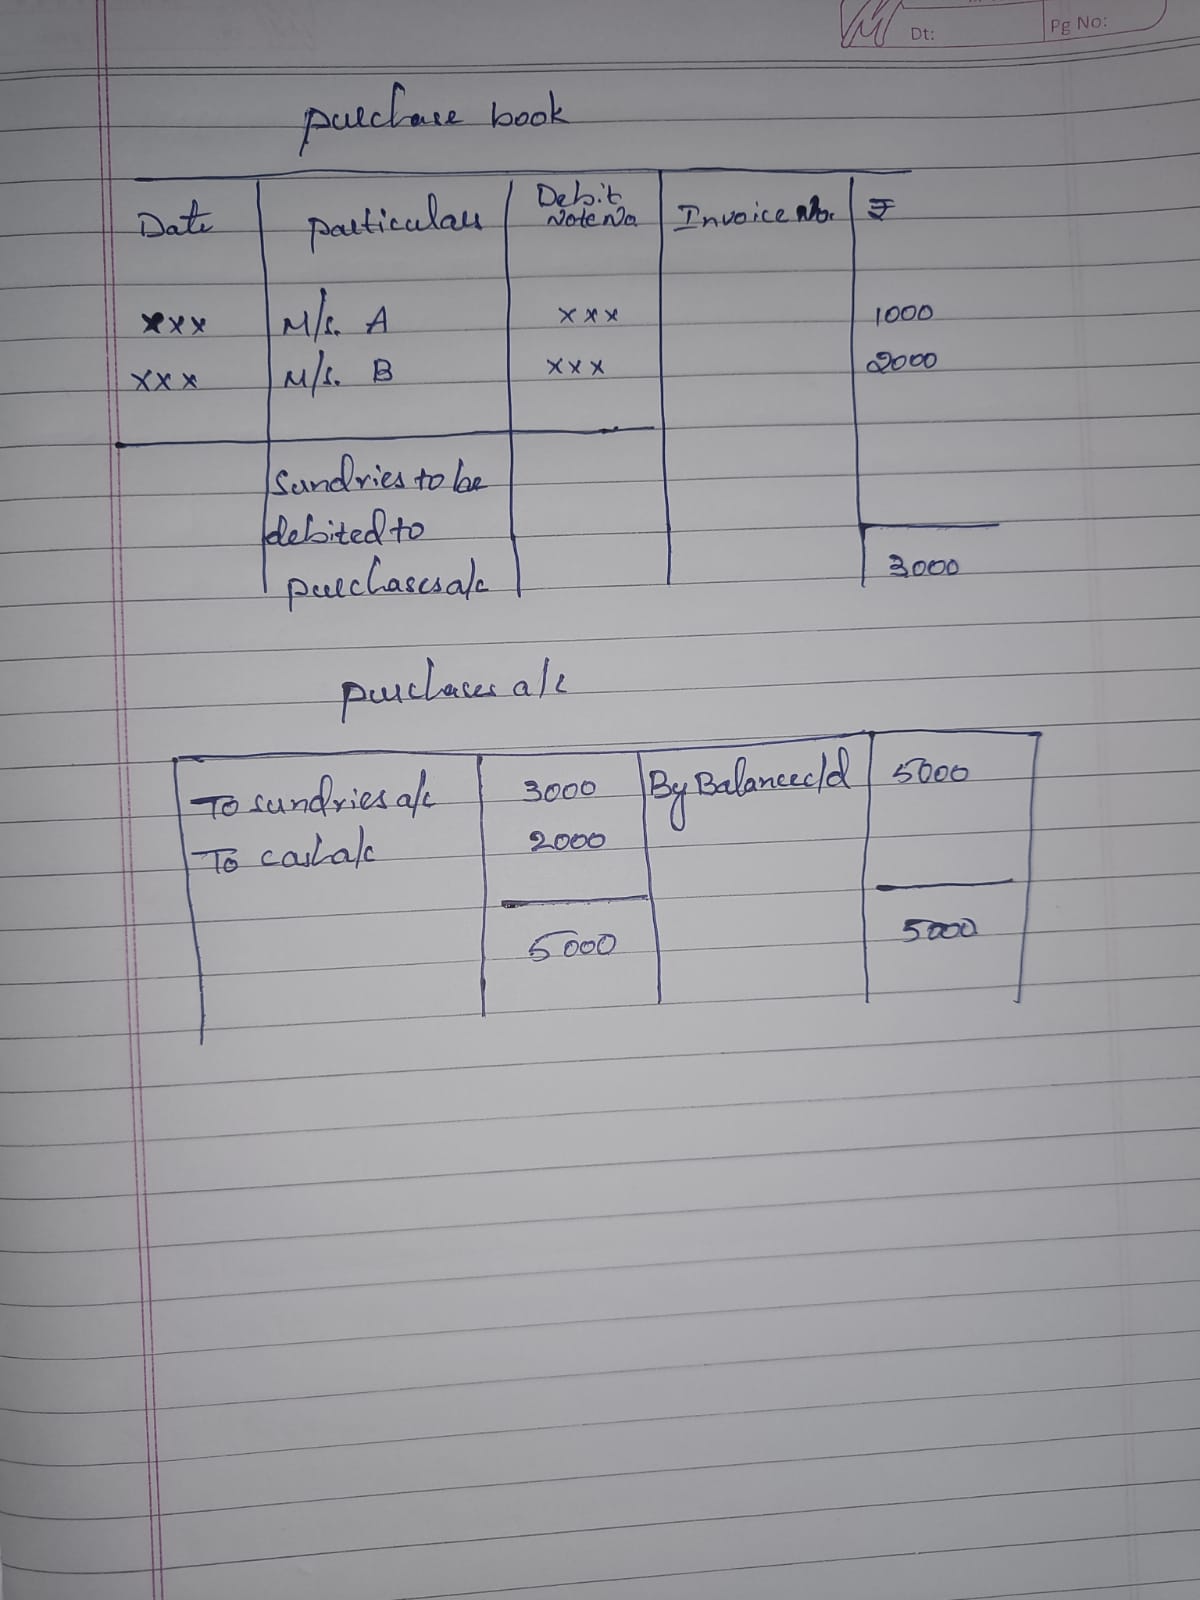 Dt:
Pg No:
purchase book
Date
particulars
Debit
Note No
Invoice No.
₹
xxx M/s. A xxx 1000
xxx M/s. B xxx 2000
Sundries to be
debited to
purchases a/c
3000
purchases a/c
To sundries a/c 3000 By Balance c/d 5000
To cash a/c 2000
5000 5000